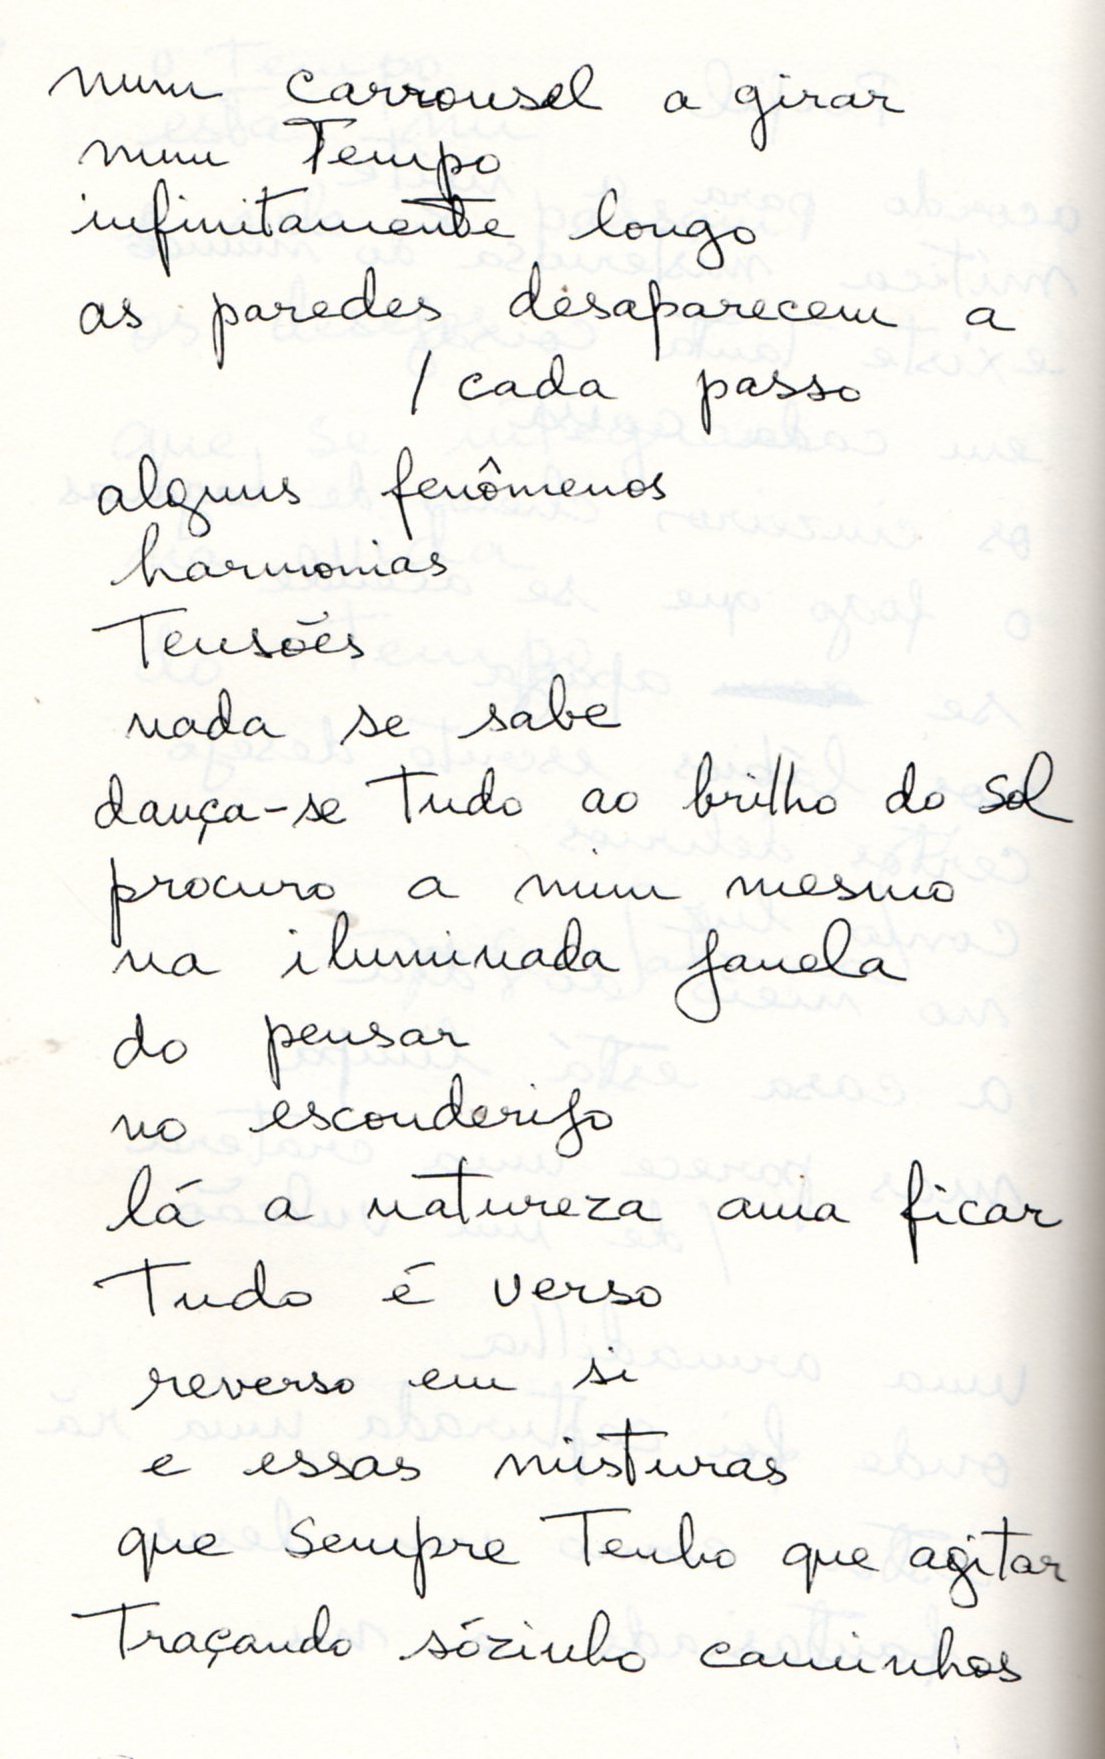 num carrousel a girar
num Tempo
infinitamente longo
as paredes desaparecem a
/ cada passo
alguns fenômenos
harmonias
Tensões
nada se sabe
dança-se Tudo ao brilho do sol
procuro a mim mesmo
na iluminada janela
do pensar
no esconderijo
lá a natureza ama ficar
Tudo é verso
reverso em si
e essas misturas
que sempre Tenho que agitar
Traçando sózinho caminhos